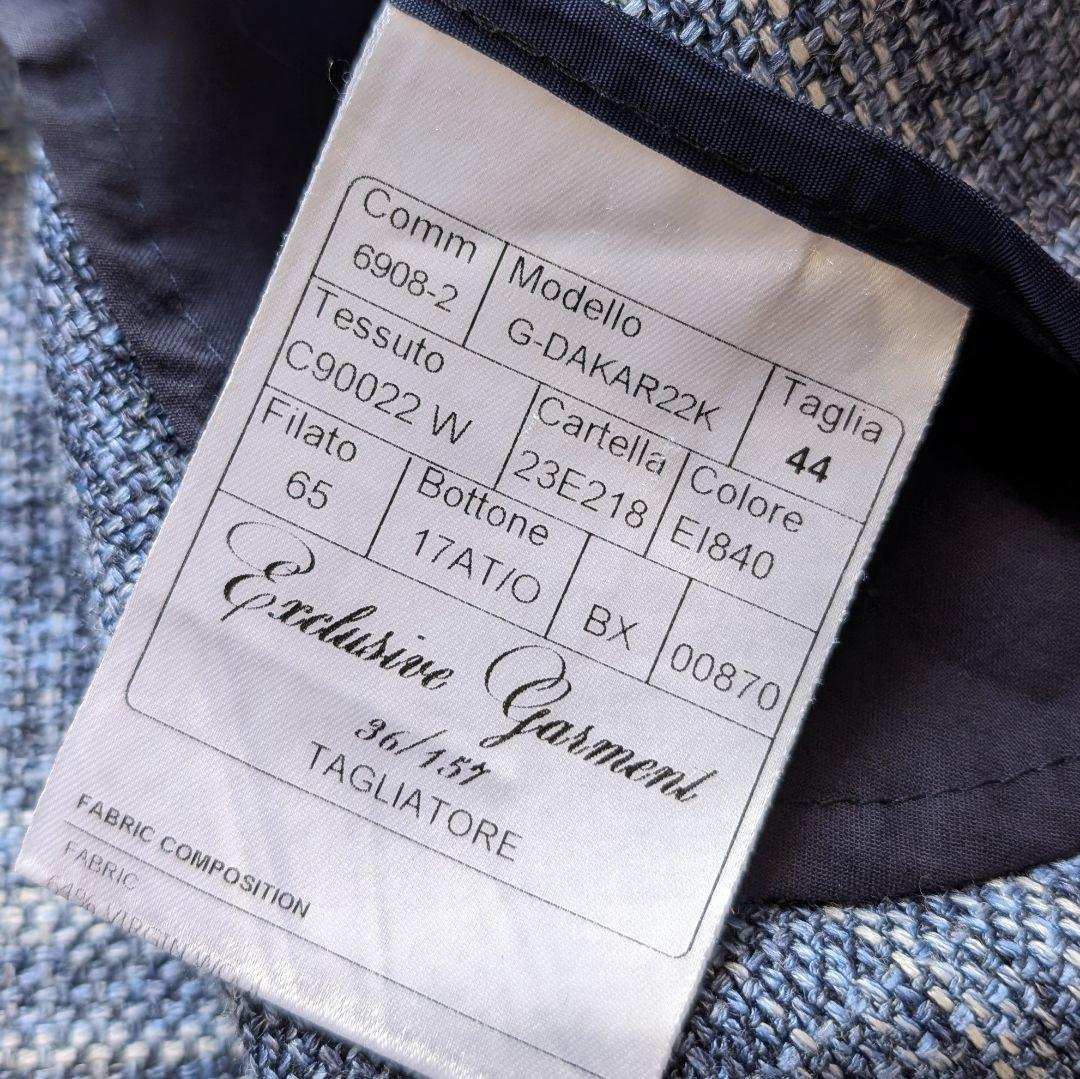 Comm Modello Taglia
6908-2 G-DAKAR22K 44
Tessuto Cartella Colore
C90022 W 23E218 EI840
Filato Bottone
65 17AT/O BX 00870
Exclusive Garment
36/157
TAGLIATORE
FABRIC COMPOSITION
FABRIC
64% VIRGIN